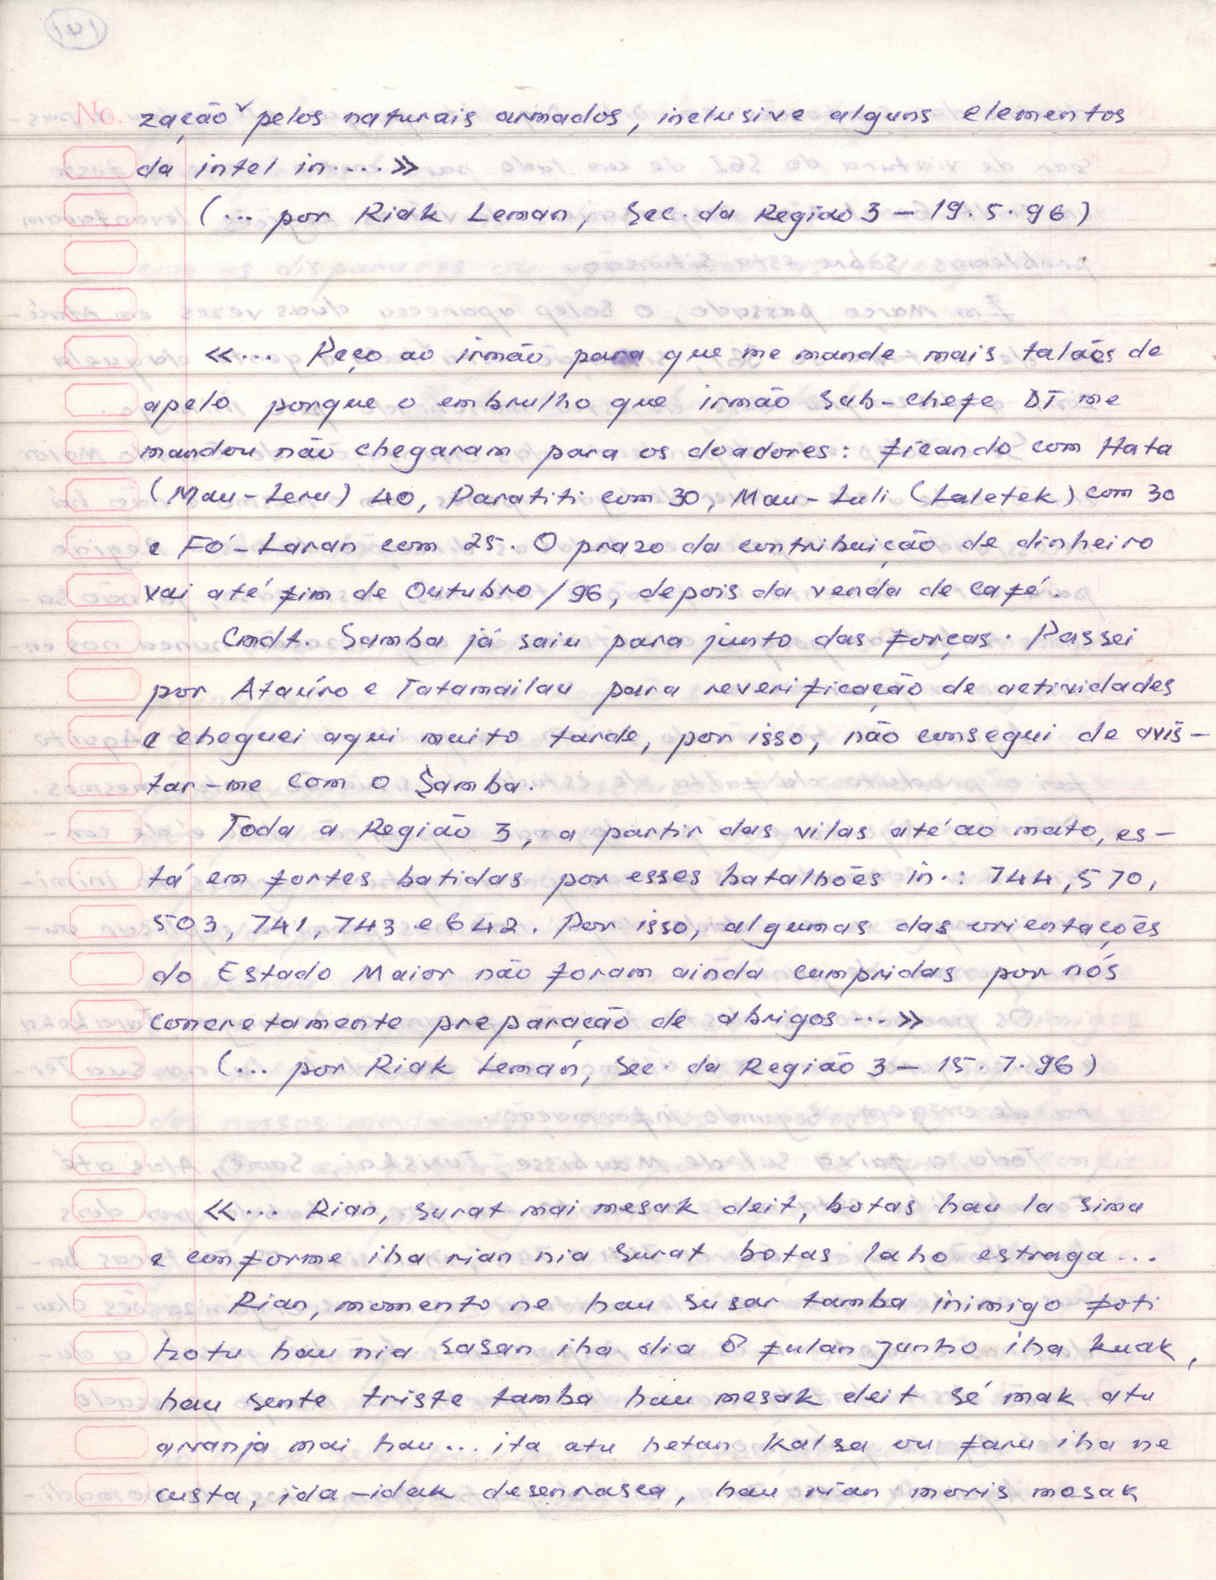 zação pelos naturais armados, inclusive alguns elementos
da intel in.... »
(... por Riak Leman, Sec. da Região 3 – 19.5.96)
«... Peço ao irmão para que me mande mais talões de
apelo porque o embrulho que irmão Sub-chefe DI me
mandou não chegaram para os doadores: ficando com Hata
(Mau-Leru) 40, Paratiti com 30, Mau-Luli (Laletek) com 30
e Fó-Laran com 25. O prazo da contribuição de dinheiro
vai até fim de Outubro/96, depois da venda de café.
Cmdt. Samba já saiu para junto das forças. Passei
por Ataúro e Tatamailau para reverificação de actividades
e cheguei aqui muito tarde, por isso, não consegui de avis-
tar-me com o Samba.
Toda a Região 3, a partir das vilas até ao mato, es-
tá em fortes batidas por esses batalhões in.: 744, 570,
503, 741, 743 e 642. Por isso, algumas das orientações
do Estado Maior não foram ainda cumpridas por nós
concretamente preparação de abrigos ... »
(... por Riak Leman, Sec. da Região 3 – 15.7.96)
«... Rian, surat mai mesak deit, botas hau la sima
e conforme iha rian nia surat botas laho estraga...
Rian, momento ne hau susar tamba inimigo foti
hotu hau nia sasan iha dia 8 fulan Junho iha kuak,
hau sente triste tamba hau mesak deit sé mak atu
arranja mai hau... ita atu hetan kalsa ou faru iha ne
custa, ida-idak desenrasca, hau rian moris mesak